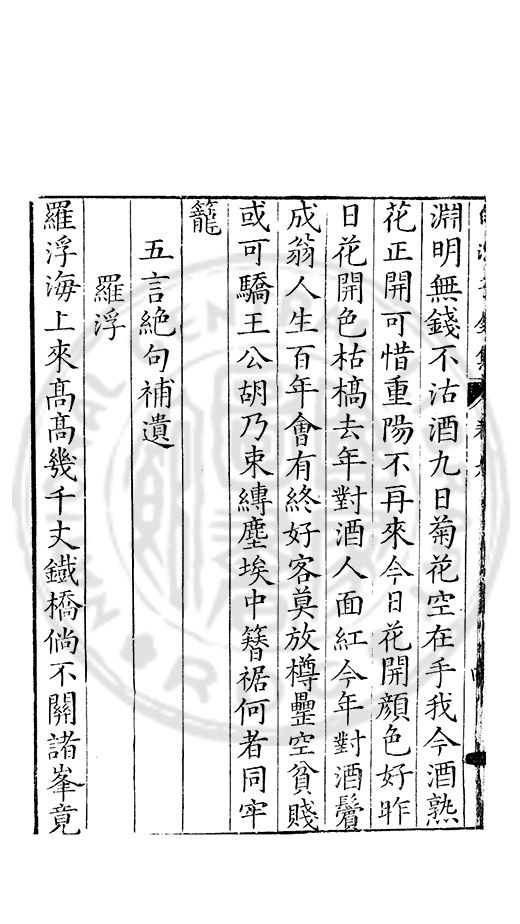 淵明無錢不沽酒九日菊花空在手我今酒熟
花正開可惜重陽不再來今日花開顔色好昨
日花開色枯槁去年對酒人面紅今年對酒鬢
成翁人生百年會有終好客莫放樽罍空貧賤
或可驕王公胡乃束縛塵埃中簪裾何者同牢
籠
五言絶句補遺
羅浮
羅浮海上來髙髙幾千丈鐵橋倘不關諸峯竟